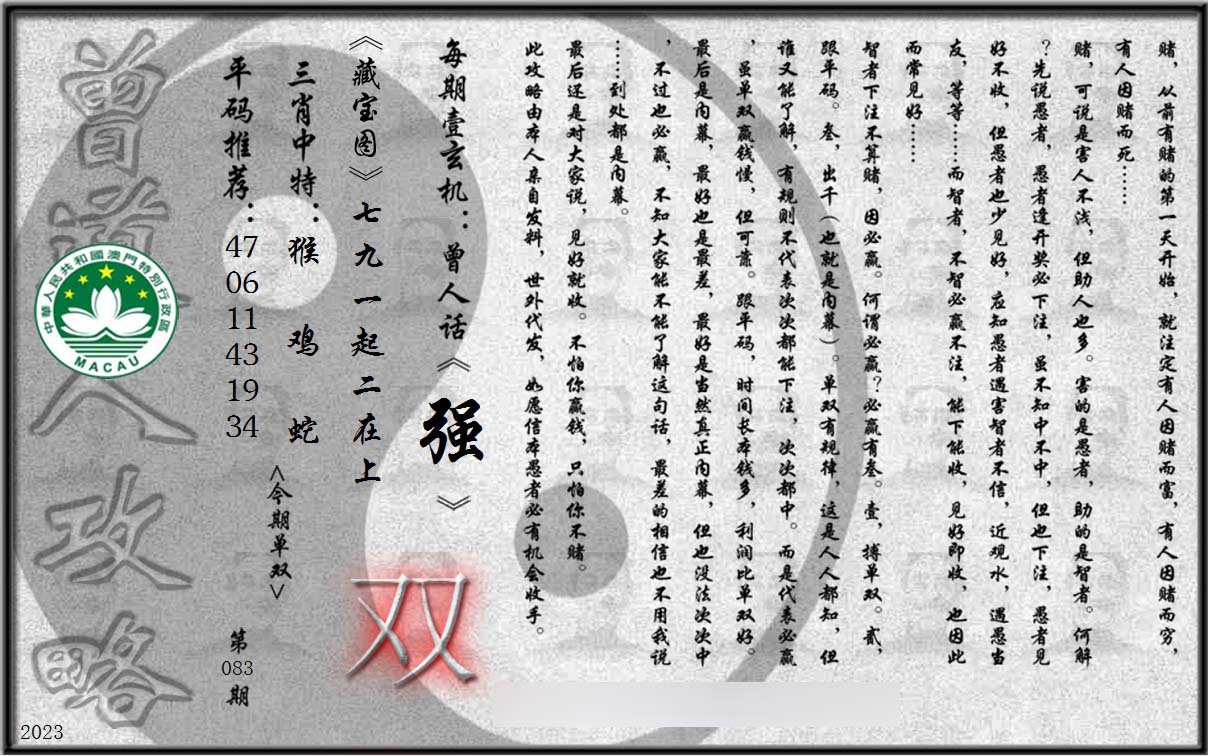 赌，从前有赌的第一天开始，就注定有人因赌而富，有人因赌而穷，
有人因赌而死……
赌，可说是害人不浅，但助人也多。害的是愚者，助的是智者。何解
？先说愚者，愚者逢开奖必下注，虽不知中不中，但也下注，愚者见
好不收，但愚者也少见好，应知愚者遇害智者不信，近观水，遇愚当
友，等等……而智者，不智必赢不注，能下能收，见好即收，也因此
而常见好……
智者下注不算赌，因必赢。何谓必赢？必赢有叁。壹，搏单双。贰，
跟平码。叁，出千（也就是内幕）。单双有规律，这是人人都知，但
谁又能了解，有规则不代表次次都能下注，次次都中。而是代表必赢
，虽单双赢钱慢，但可靠。跟平码，时间长本钱多，利润比单双好。
最后是内幕，最好也是最差，最好是当然真正内幕，但也没法次次中
，不过也必赢，不知大家能不能了解这句话，最差的相信也不用我说
……到处都是内幕。
最后还是对大家说，见好就收。不怕你赢钱，只怕你不赌。
此攻略由本人亲自发料，世外代发，如愿信本愚者必有机会收手。
每期壹玄机：曾人话《强》
《藏宝图》七九一起二在上
双
三肖中特：猴 鸡 蛇
<今期单双>
平码推荐：47 06 11 43 19 34
第083期
曾道人攻略
中華人民共和國澳門特別行政區
MACAU
2023